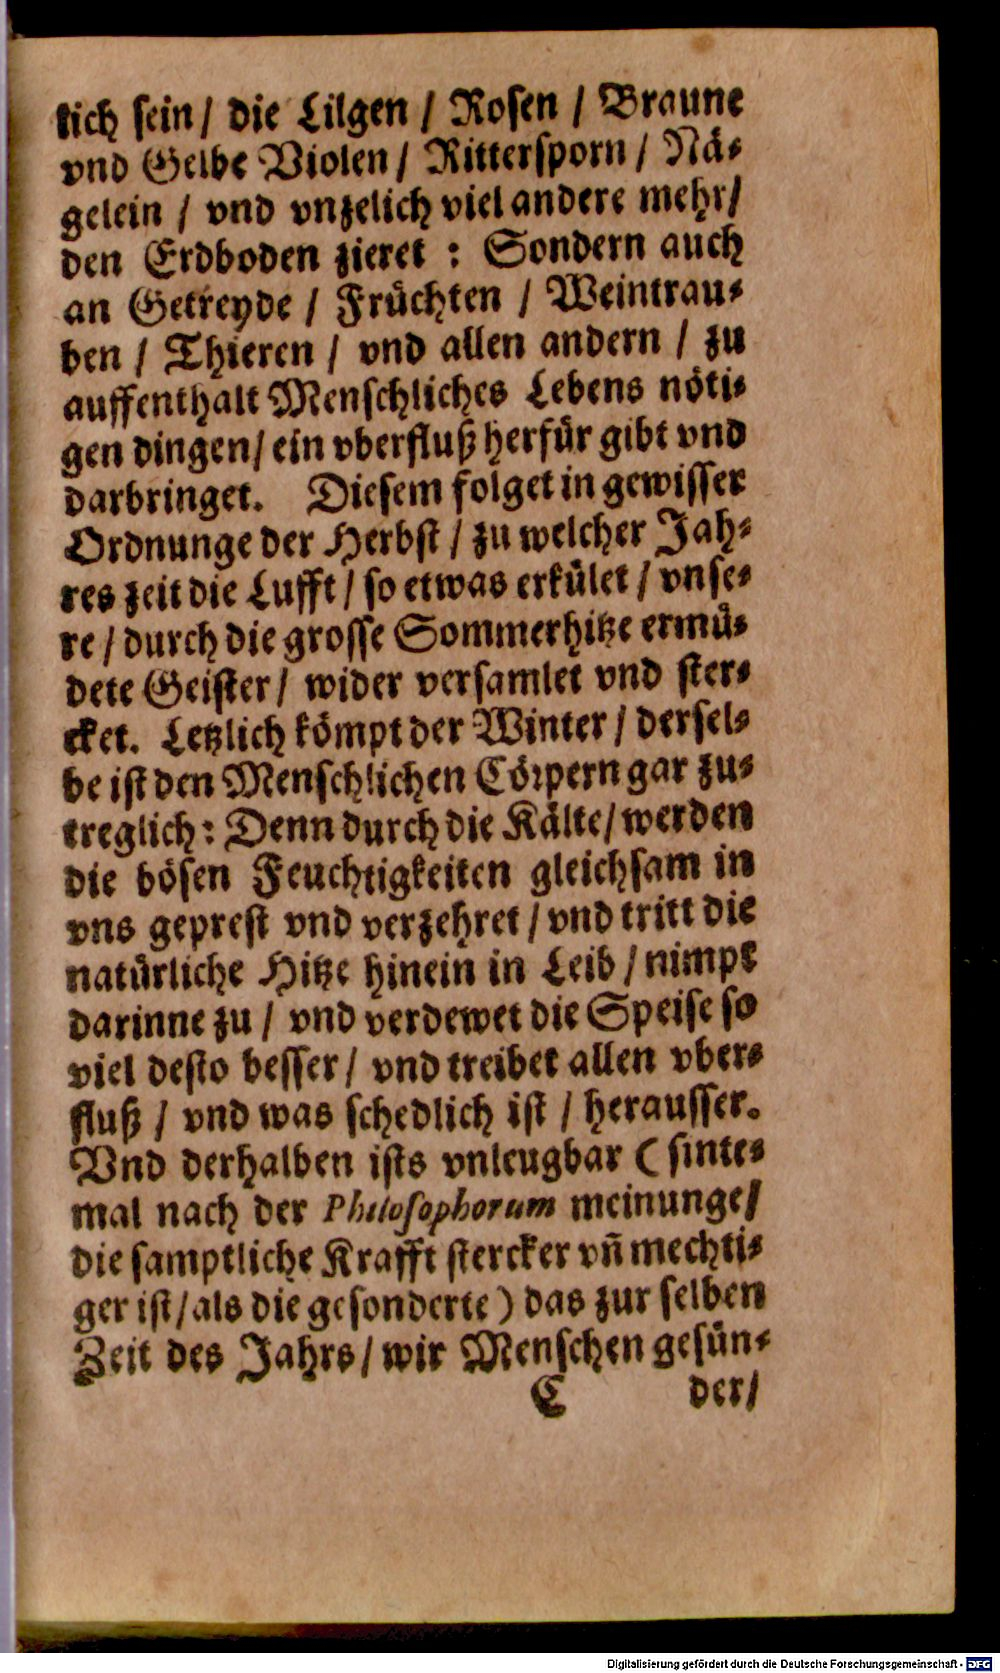 lich sein / die Lilgen / Rosen / Braune
vnd Gelbe Violen / Rittersporn / Nä-
gelein / vnd vnzelich viel andere mehr /
den Erdboden zieret : Sondern auch
an Getreyde / Früchten / Weintrau-
ben / Thieren / vnd allen andern / zu
auffenthalt Menschliches Lebens nöti-
gen dingen / ein vberfluß herfür gibt vnd
darbringet. Diesem folget in gewisser
Ordnunge der Herbst / zu welcher Jah-
res zeit die Lufft / so etwas erkület / vnse-
re / durch die grosse Sommerhitze ermü-
dete Geister / wider versamlet vnd ster-
cket. Letzlich kömpt der Winter / dersel-
be ist den Menschlichen Cörpern gar zu-
treglich : Denn durch die Kälte / werden
die bösen Feuchtigkeiten gleichsam in
vns geprest vnd verzehret / vnd tritt die
natürliche Hitze hinein in Leib / nimpt
darinne zu / vnd verdewet die Speise so
viel desto besser / vnd treibet allen vber-
fluß / vnd was schedlich ist / herausser.
Vnd derhalben ists vnleugbar ( sinte-
mal nach der Philosophorum meinunge /
die samptliche Krafft stercker vn̄ mechti-
ger ist / als die gesonderte ) das zur selben
Zeit des Jahrs / wir Menschen gesün-
C der /
Digitalisierung gefördert durch die Deutsche Forschungsgemeinschaft - DFG